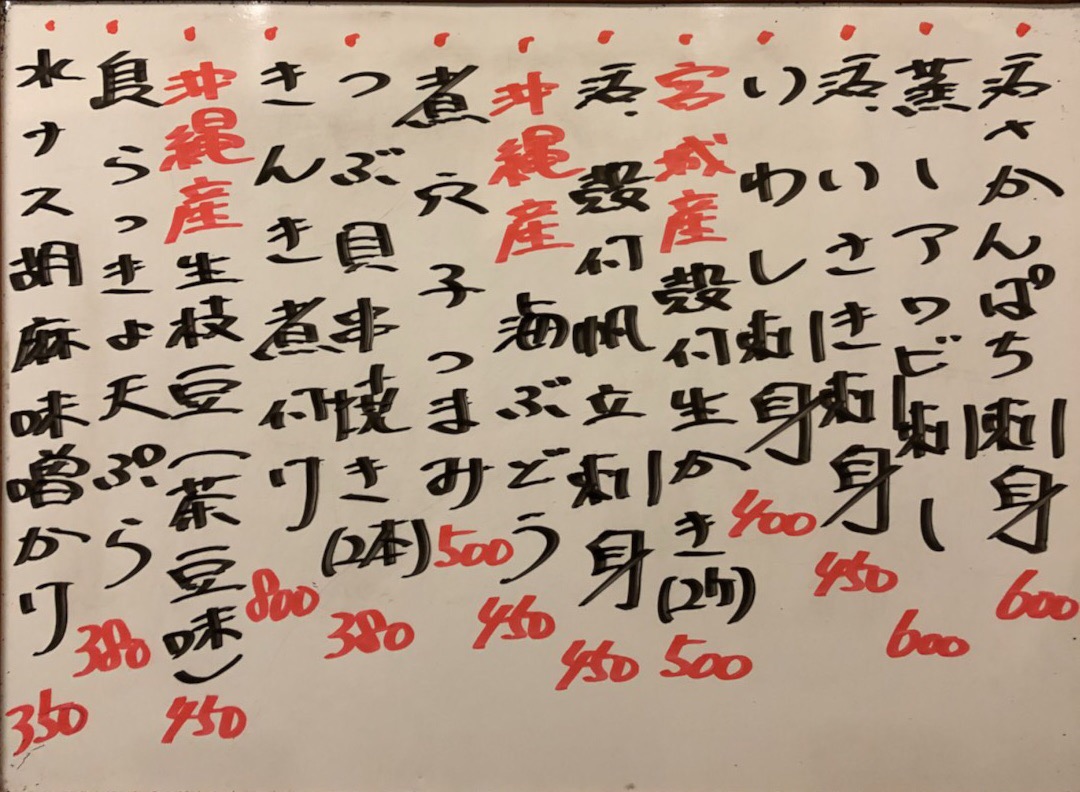 活〆かんぱち刺身 600
蒸しアワビ刺し 600
活いさき刺身 450
いわし刺身 400
宮城産殻付生かき(2ケ) 500
活殻付帆立刺身 450
沖縄産海ぶどう 450
煮穴子つまみ 500
つぶ貝串焼き(2本) 380
きんき煮付け 800
沖縄産生枝豆(茶豆味) 450
島らっきょ天ぷら 380
水ナス胡麻味噌かけ 350